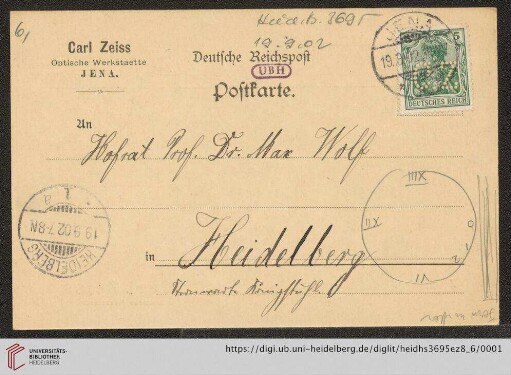 6)
Heid. Hs. 3695
19.9.02
Carl Zeiss
Optische Werkstaette
JENA.
Deutsche Reichspost
UBH
Postkarte.
JENA
19.9.02
5
DEUTSCHES REICH
An
Hofrat Prof. Dr. Max Wolf
in Heidelberg
Sternwarte Königstuhl
HEIDELBERG
19.9.02.7-8N
1.a
IIIX
IX
0
VI
UNIVERSITÄTS-
BIBLIOTHEK
HEIDELBERG
https://digi.ub.uni-heidelberg.de/diglit/heidhs3695ez8_6/0001